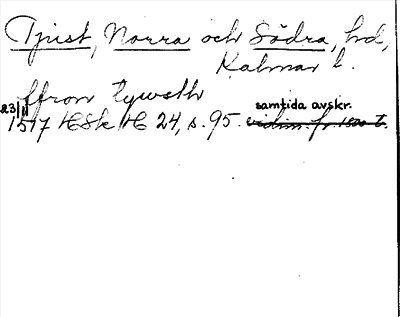 Tjust, Norra och Södra, hd,
Kalmar l.
ffron tywsth
23/11 samtida avskr.
1517 HSk H 24, s. 95. vidim. fr. 1500 t.